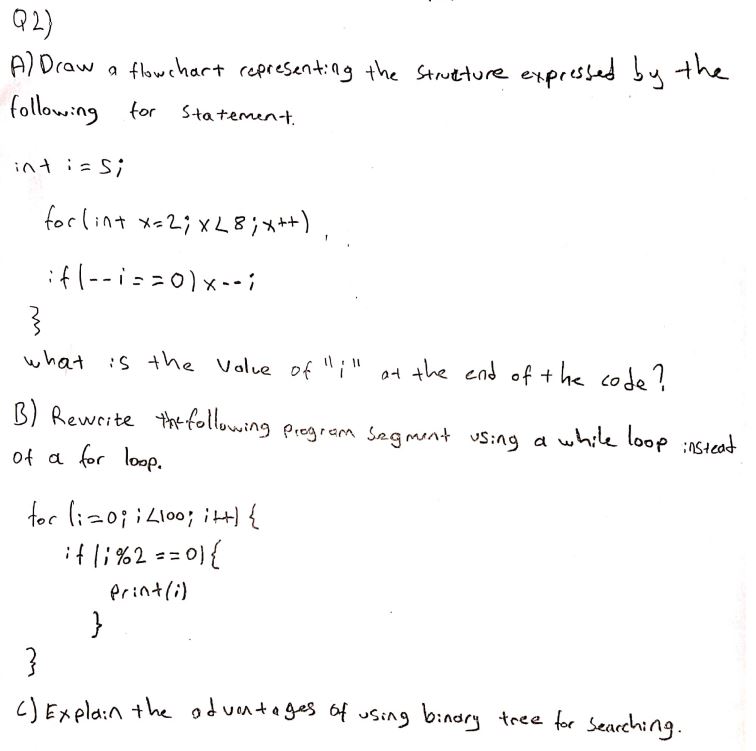 Q2)
A) Draw a flowchart representing the structure expressed by the
following for statement.
int i = 5;
for (int x=2; x<8; x++)
if (--i==0) x--;
}
what is the value of "i" at the end of the code?
B) Rewrite the following program segment using a while loop instead
of a for loop.
for (i=0; i<100; i++) {
if (i%2 ==0) {
print(i)
}
}
C) Explain the advantages of using binary tree for searching.